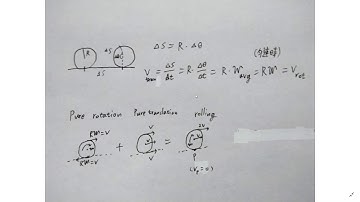 R ΔS ΔS = R · Δθ
ΔS
V = ΔS/Δt = R · Δθ/Δt = R · W avg = RW = V rot
Pure rotation Pure translation rolling
RW=V V 2V
+ =
RW=V V P
(Vp=0)